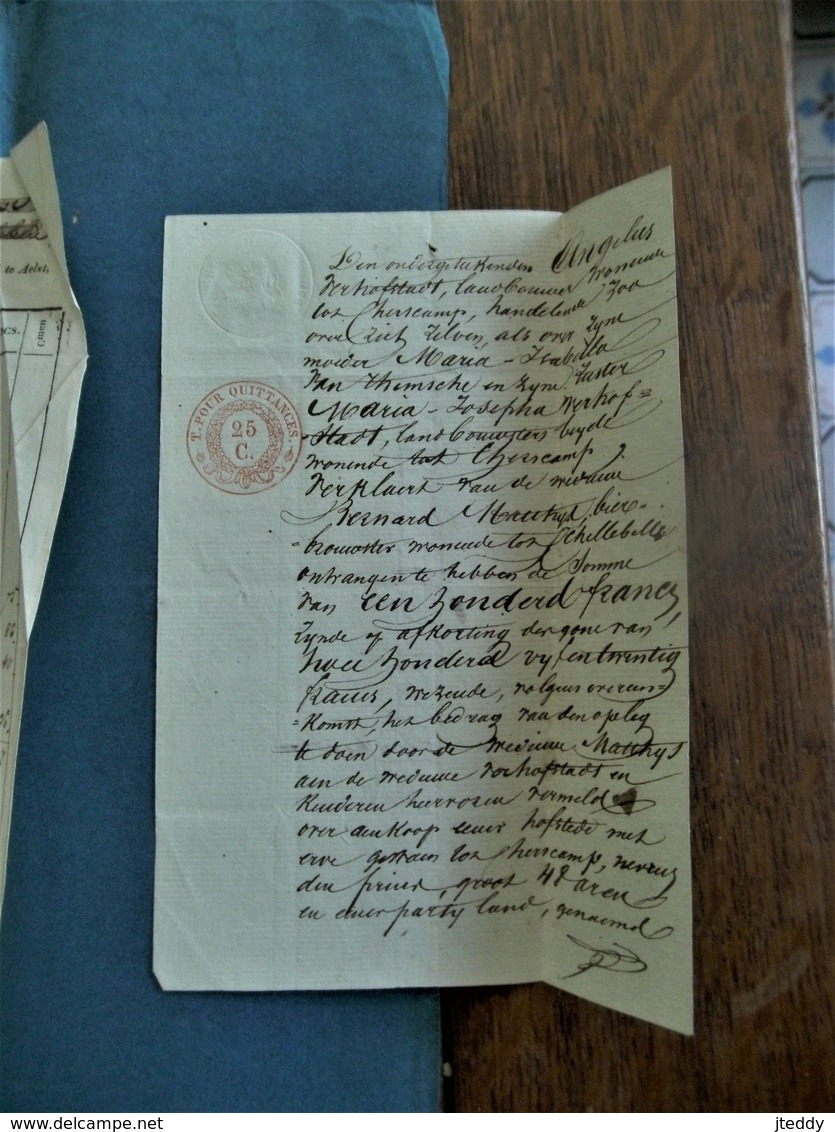 te Aelst,
Omen
T. POUR QUITTANCES.
25
C.
Den ondergeteekenden Angelus
Verhofstadt, landbouwer wonende
tot Cherscamp, handelende zoo
over zich zelven, als over zyne
moeder Maria-Isabella
Van Themsche en zyne zuster
Maria-Josepha Verhof=
stadt, landbouwsters beyde
wonende tot Cherscamp,
Verklaert van de weduwe
Bernard Matthys, bier=
=brouwster wonende tot Schellebelle
ontvangen te hebben de somme
van een honderd francs,
zynde op afkorting der gone van
twee honderd vyf en twintig
francs, wezende, volgens overeen=
=komst, het bedrag van den opleg
te doen door de weduwe Matthys
aen de weduwe Verhofstadt en
kinderen hervoren vermeld
over den koop eener hofstede met
erve gestaen tot Cherscamp, nevens
den groot 48 aren
en eener party land, genaemd
delcampe.net
jteddy